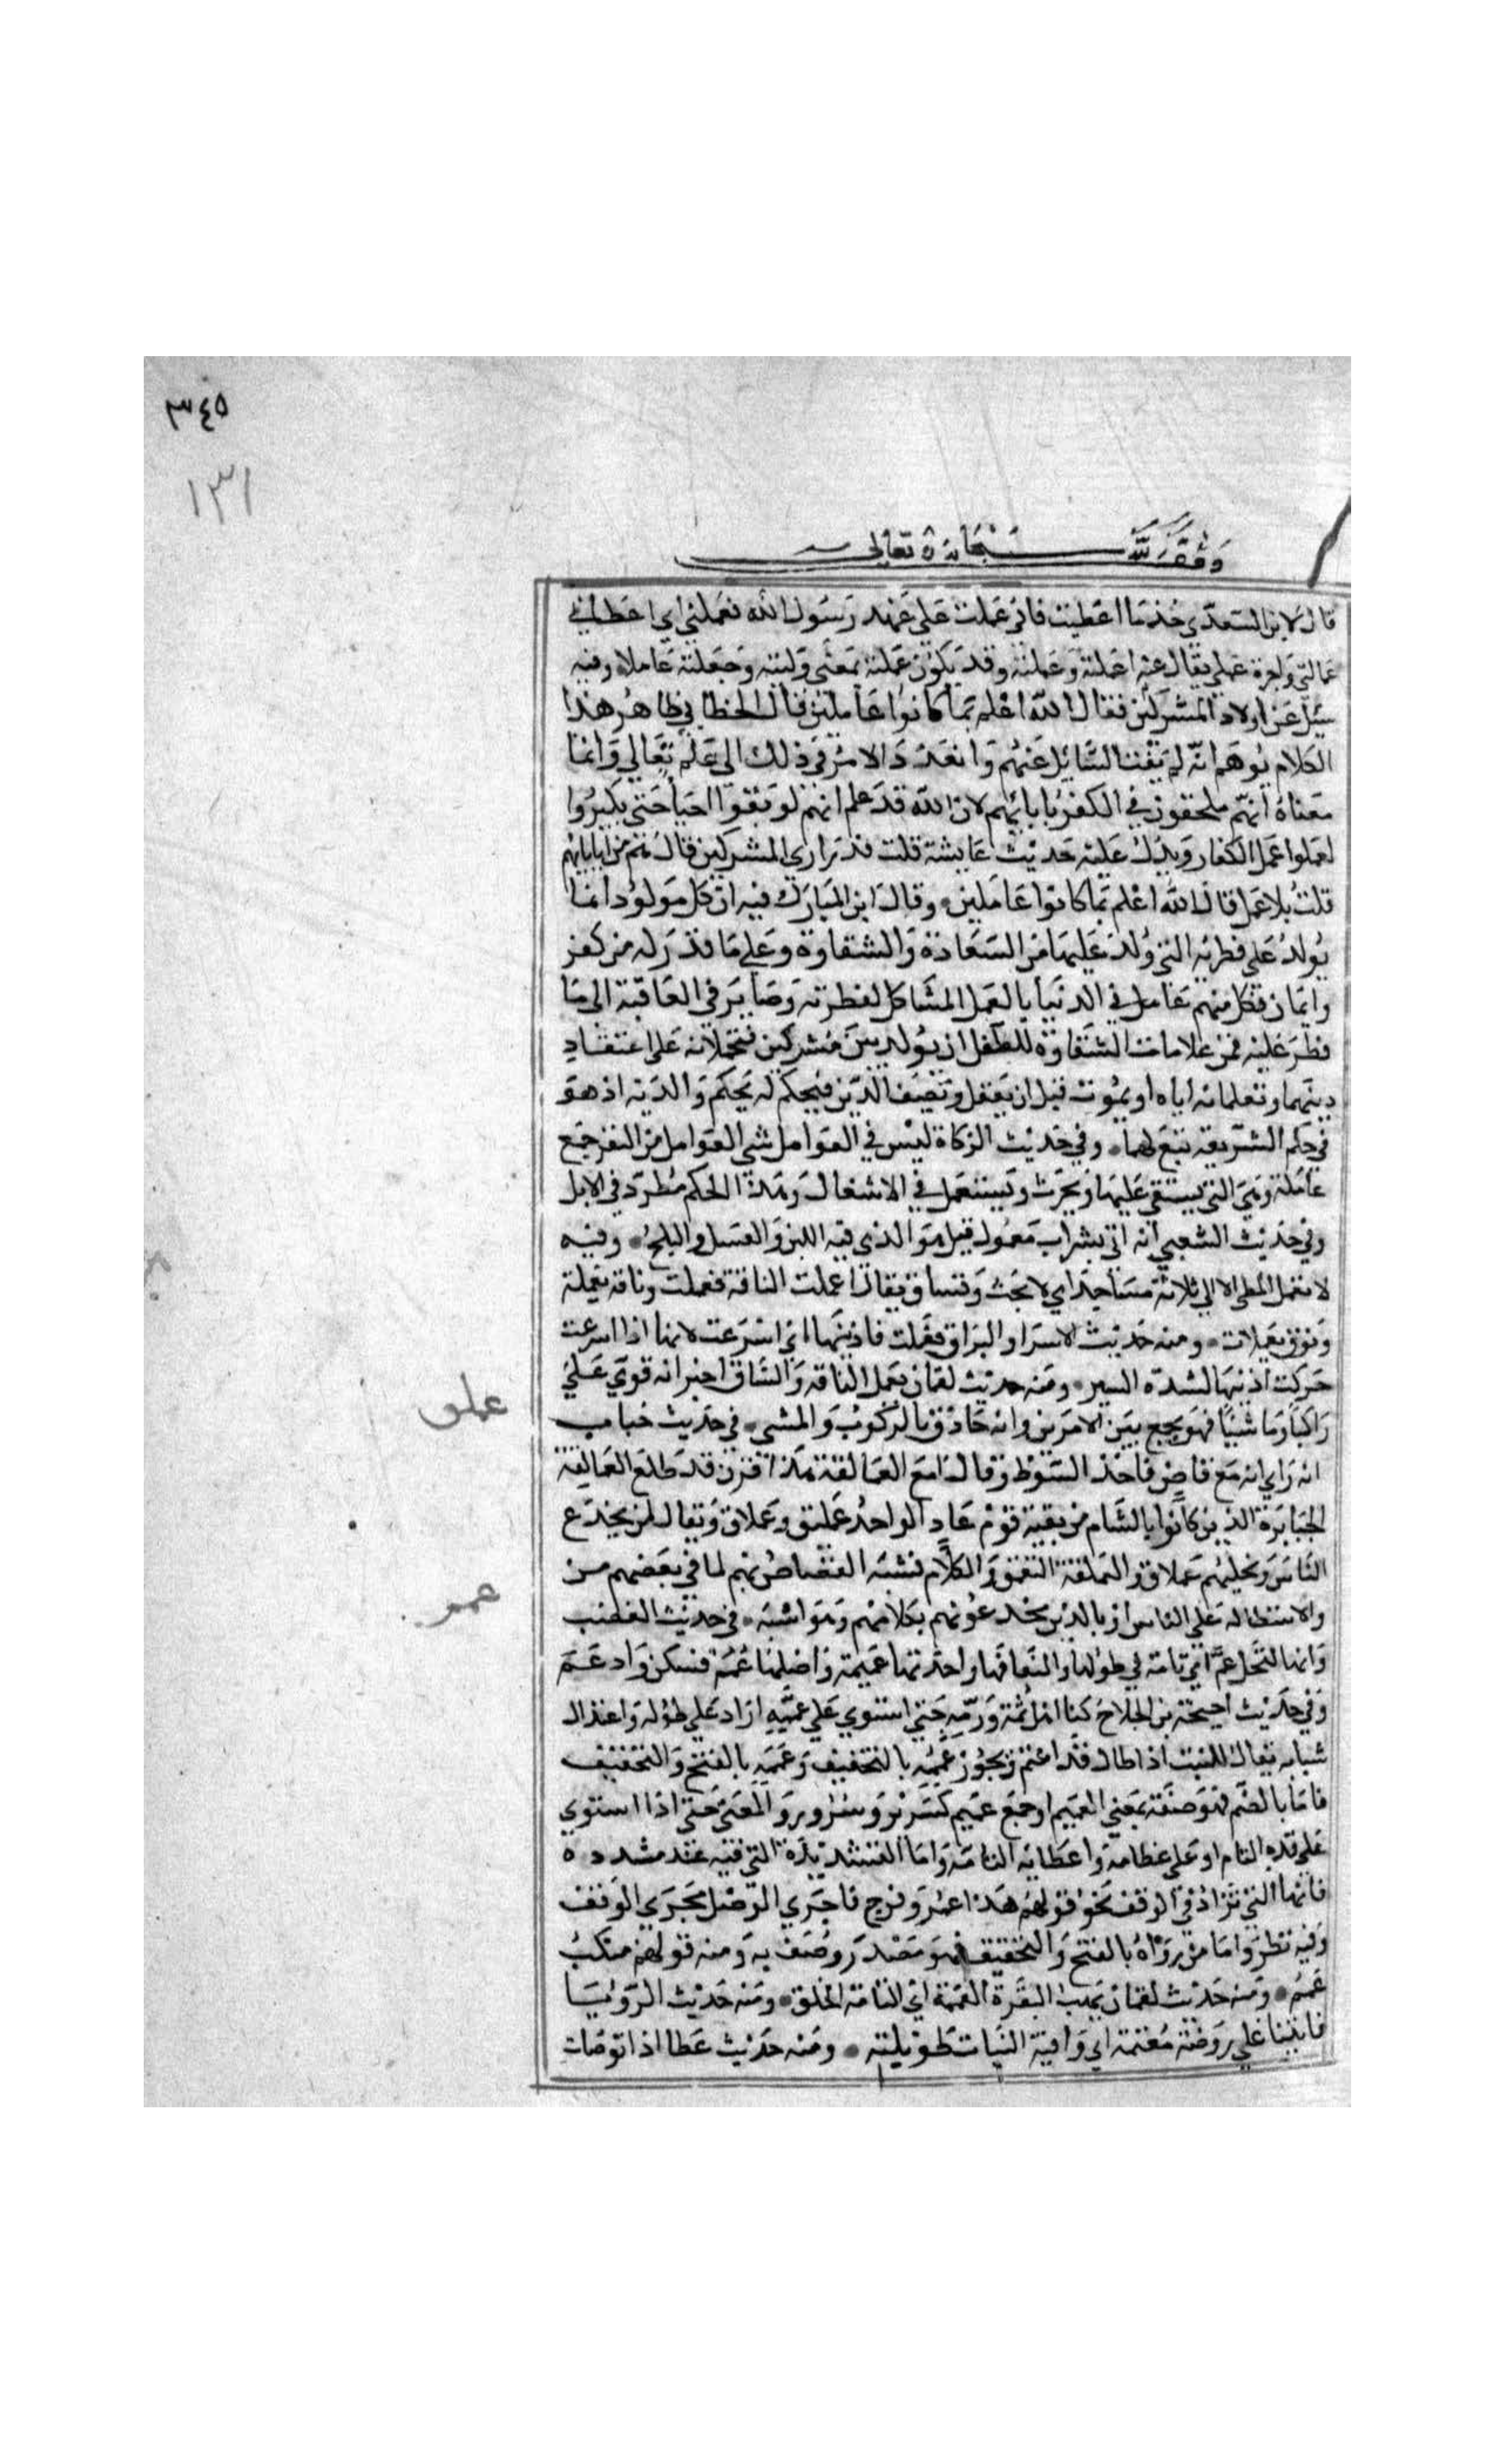 ٣٤٥
١٣١
وقف لله سبحانه وتعالى
قال لابن السعدي خذ ما اعطيت فاني عملت على عهد رسول الله فعملني اي اعطاني
عمالتي واجرة عملي يقال عنه اعملته وعملته وقد يكون عملته بمعنى وليته وجعلته عاملا وفيه
سئل عن اولاد المشركين فقال الله اعلم بما كانوا عاملين قال الخطابي ظاهر هذا
الكلام يوهم انه لم يفت السائل عنهم وانه رد الامر في ذلك الى علم تعالى وانما
معناه انهم ملحقون في الكفر بابائهم لان الله قد علم انهم لو بقوا احيا حتى يكبروا
لعملوا عمل الكفار ويدل عليه حديث عايشة قلت فذراري المشركين قال هم من ابايهم
قلت بلا عمل قال الله اعلم بما كانوا عاملين وقال ابن المبارك فيه ان كل مولود انما
يولد على فطرته التي ولد عليها من السعادة والشقاوة وعلى ما قدر له من كفر
وايمان فكل منهم عامل في الدنيا بالعمل المشاكل لفطرته وصاير في العاقبة الى ما
فطر عليه فمن علامات الشقاوة للطفل ان يولد بين مشركين فيحملانه على اعتقاد
دينهما ويعلمانه اياه او يموت قبل ان يعقل ويصف الدين فيحكم له بحكم والديه اذ هو
في حكم الشريعة تبع لهما وفي حديث الزكاة ليس في العوامل شي العوامل من البقر جمع
عاملة وهي التي يستقى عليها ويحرث وتستعمل في الاشغال وهذا الحكم مطرد في الابل
وفي حديث الشعبي انه اتي بشراب معمول قيل هو الذي فيه اللبن والعسل والبلح وفيه
لا تعمل المطي الا الى ثلاثة مساجد اي لا تحث وتساق يقال اعملت الناقة فعملت وناقة يعملة
ونوق يعملات ومنه حديث الاسرا والبراق فعملت فاذنيها اي اسرعت لانها اذا اسرعت
حركت اذنيها لشدة السير ومنه حديث لقمان يعمل الناقة والساق اخبر انه قوي على
راكبا وماشيا فهو يجمع بين الامرين وانه حاذق بالركوب والمشي في حديث خباب
عملق
انه راى ابنه مع قاص فاخذ السوط وقال امع العمالقة هذا قرن قد طلع العمالقة
الجبابرة الذين كانوا بالشام من بقية قوم عاد الواحد عمليق وعملاق ويقال لمن يخدع
الناس ويخلبهم عملاق والعملقة التعمق والكلام فشبه القصاص بهم لما في بعضهم من
والاستطالة على الناس او بالذين يخدعونهم بكلامهم وهو اشبه في حديث الغصب
عمم
وانها لنخل عم اي تامة في طولها والتفافها واحدتها عميمة واصلها عمم فسكن وادغم
وفي حديث احيحة بن الجلاح كنا اهل ثمه ورمه حتى استوى على عممه اراد على طوله واعتدال
شبابه يقال للنبت اذا طال قد اعتم ويجوز عممه بالتخفيف وعممه بالفتح والتخفيف
فاما بالضم فهو صفة بمعنى العميم او جمع عميم كسرير وسرر والمعنى حتى اذا استوى
على قده التام او على عظامه واعضايه التامة واما التشديدة التي فيه عند مشدده
فانها التي تزاد في الوقف نحو قولهم هذا عمر وفرج فاجرى الوصل مجرى الوقف
وفيه نظر واما من رواه بالفتح والتخفيف فهو مصدر وصف به ومنه قولهم منكب
عمم ومنه حديث لقمان يهب البقرة العممة اي التامة الخلق ومنه حديث الرؤيا
فاتينا على روضة معتمة اي وافية النبات طويلته ومنه حديث عطا اذا توضات